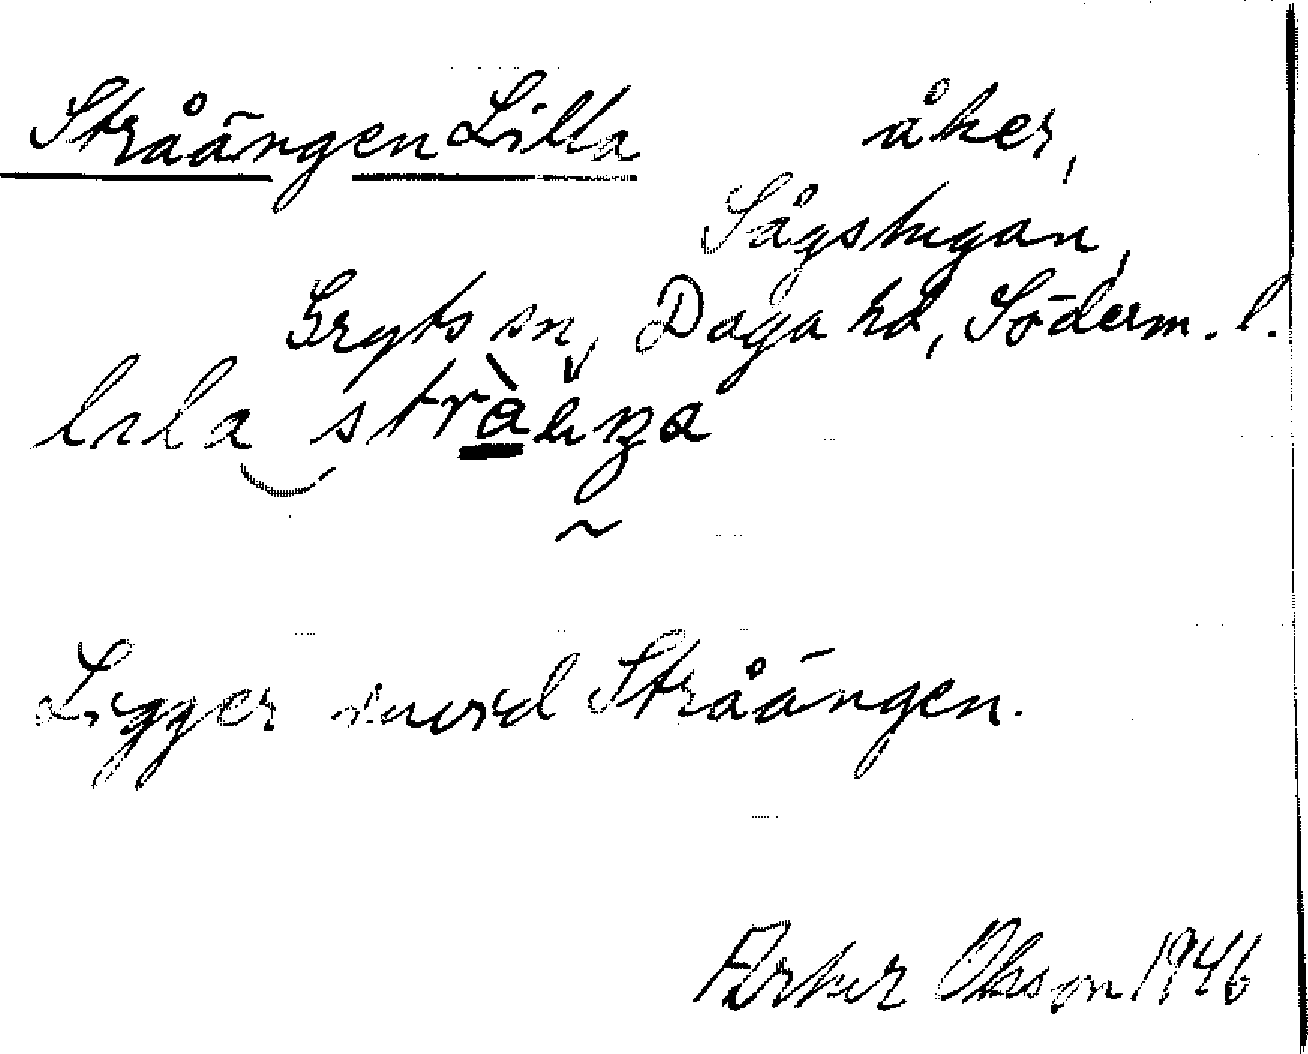 Stråängen Lilla åker,
Sågstugan,
Gryts sn, Daga hd, Söderm. l.
lila
Ligger invid Stråängen.
Ohlson 1946